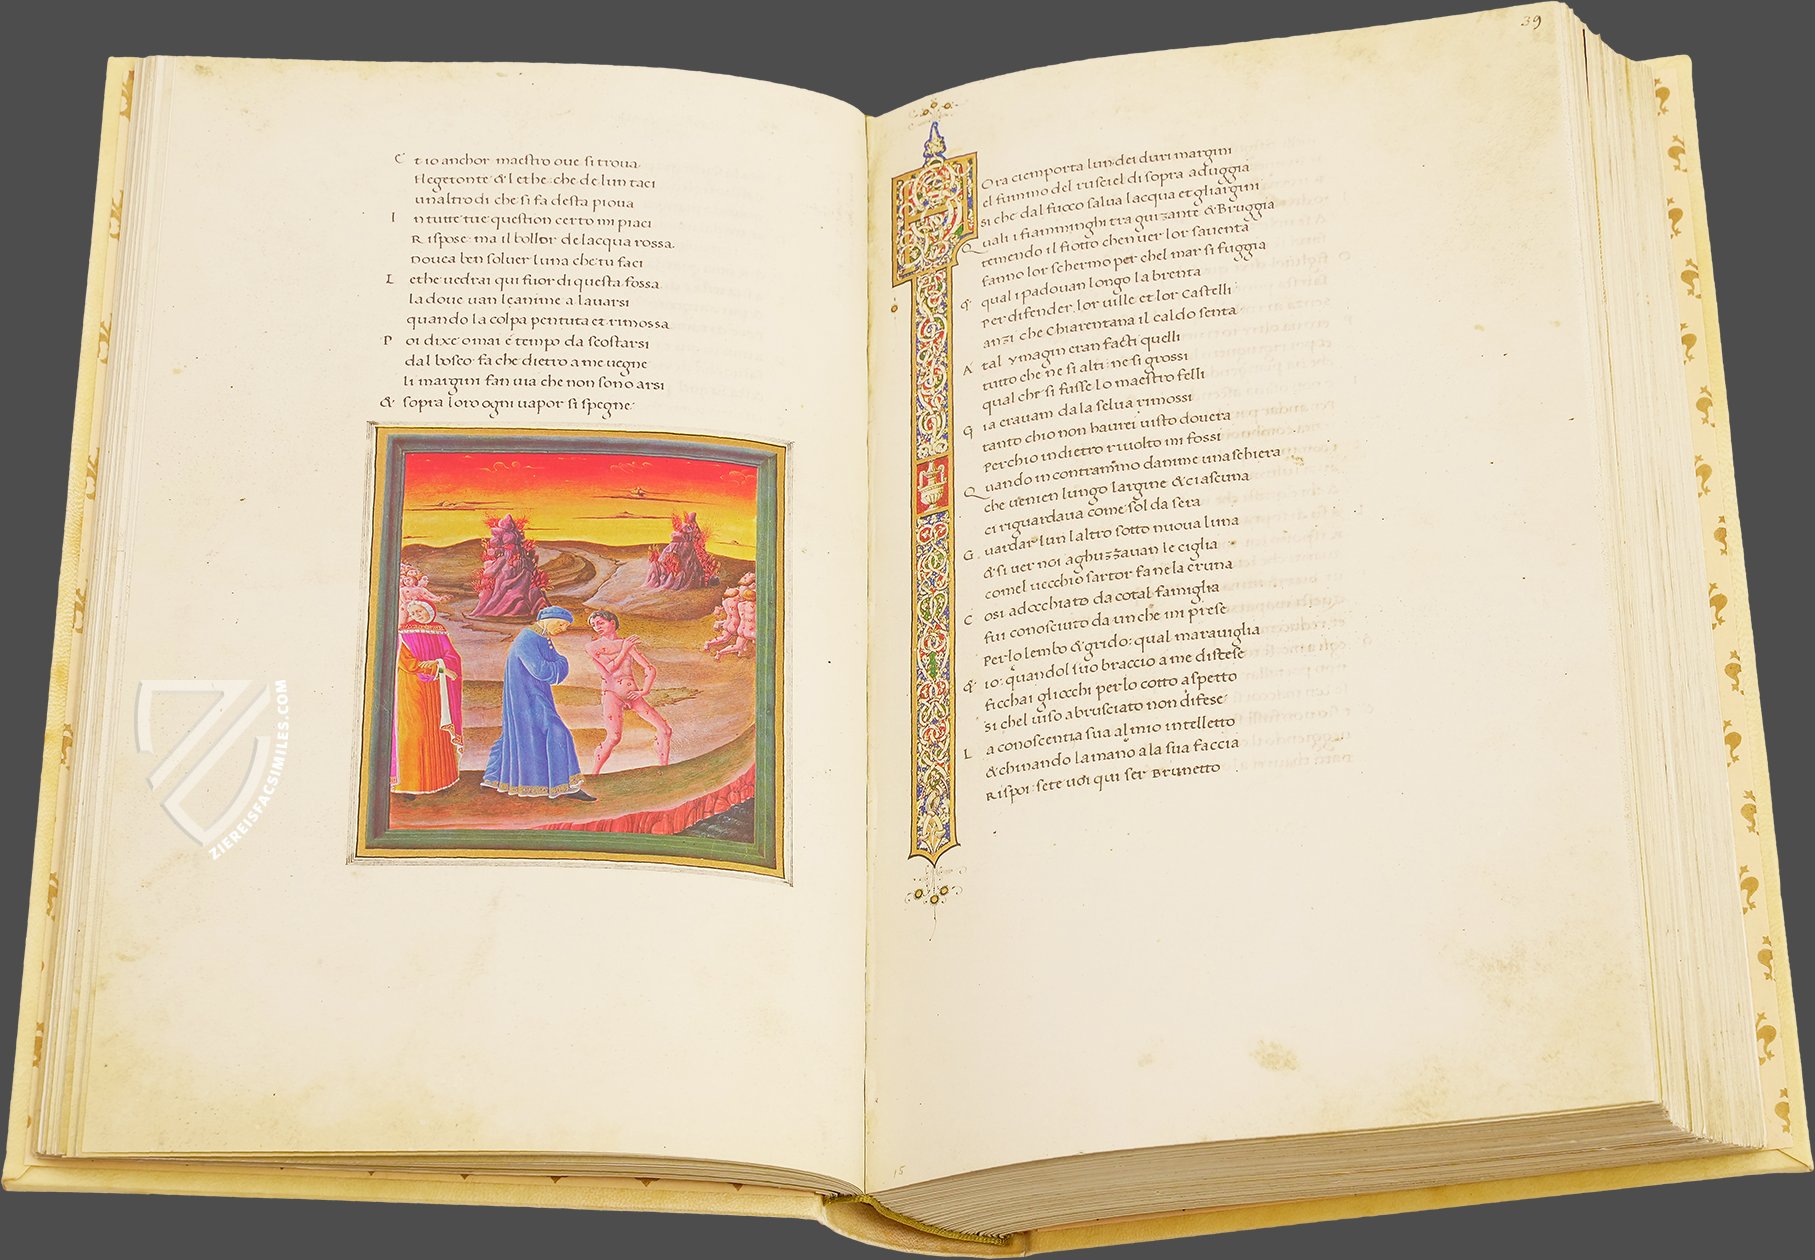 E t io anchor maestro oue si troua
flegetonte & lethe che de lun taci
un altro di che si fa desta pioua
I n tutte tue question certo mi piaci
Rispose ma il bollor de lacqua rossa
douea ben soluer luna che tu faci
L ethe uedrai qui fuor di questa fossa
la doue uan leanime a lauarsi
quando la colpa pentuta et rimossa
P oi dixe omai e tempo da scostarsi
dal bosco fa che dietro a me uegne
li margini fan uia che non sono arsi
& sopra loro ogni uapor si spegne
39
Ora ciemporta lun dei duri margini
el fummo del rusciel di sopra aduggia
si che dal fuoco salua lacqua et gliargini
Q uali i fiamminghi tra guizante & Bruggia
temendo il fiotto chen uer lor sauenta
fanno lor schermo per chel mar si fuggia
& qual i padouan longo la brenta
per difender lor uille et lor castelli
anzi che Chiarentana il caldo senta
A tal ymagin eran facti quelli
tutto che ne si alti ne si grossi
qual che si fusse lo maestro felli
G ia erauam da la selua rimossi
tanto chio non haurei uisto douera
perchio in dietro riuolto mi fossi
Q uando incontrammo danime una schiera
che uenien lungo largine & ciascuna
ci riguardaua come sol da sera
G uardar lun laltro sotto nuoua luna
& si uer noi aghuzzauan le ciglia
comel uecchio sartor fa ne la cruna
C osi adocchiato da cotal famiglia
fui conosciuto da un che mi prese
per lo lembo & grido: qual marauiglia
& io: quandol suo braccio a me distese
ficchai gliocchi per lo cotto aspetto
si chel uiso abrusciato non difese
L a conoscentia sua al mio intelletto
& chinando la mano a la sua faccia
Rispoi: sete uoi qui ser Brunetto
15
ZIEREISFACSIMILES.COM